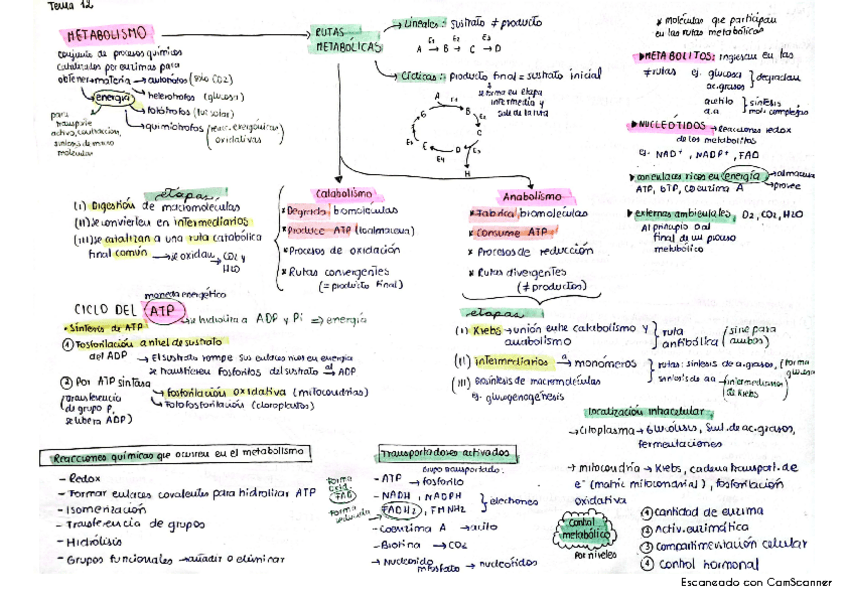 Tema 12
METABOLISMO
conjunto de procesos químicos
catalizados por enzimas para
obtener → materia → autótrofos (solo CO2)
energía → heterótrofos (glucosa)
→ fotótrofos (luz solar)
→ quimiótrofos (reacc. exergónicas oxidativas)
para
transporte
activo, contracción,
síntesis de macro
moléculas
RUTAS
METABÓLICAS
Lineales: sustrato ≠ producto
A → B → C → D
E1 E2 E3
Cíclicas: producto final = sustrato inicial
se forma en etapa
intermedia y
sale de la ruta
A E1 B E2 C E3 D E4 E E5 G
H
* moléculas que participan
en las rutas metabólicas
▸METABOLITOS: ingresan en las
≠ rutas ej. glucosa } degradan
ac. grasos
a.a } síntesis
mol. complejas
▸NUCLEÓTIDOS → Reacciones redox
de los metabolitos
ej. NAD+, NADP+, FAD
▸con enlaces ricos en energía → almacena
→ provee
ATP, GTP, coenzima A
▸externas ambientales, O2, CO2, H2O
Al principio o al
final de un proceso
metabólico
etapas
(I) Digestión de macromoléculas
(II) se convierten en intermediarios
(III) se catalizan a una ruta catabólica
final común → se oxidan → CO2 y
H2O
Catabolismo
* Degrada biomoléculas
* Produce ATP (lo almacena)
* Procesos de oxidación
* Rutas convergentes
(= producto final)
Anabolismo
* Fabrica biomoléculas
* Consume ATP
* Procesos de reducción
* Rutas divergentes
(≠ productos)
moneda energética
CICLO DEL ATP → se hidroliza a ADP y Pi ⇒ energía
• Síntesis de ATP
① Fosforilación a nivel de sustrato
del ADP → El sustrato rompe sus enlaces ricos en energía
se transfieren fosforilos del sustrato al → ADP
② Por ATP sintasa
(transferencia
de grupo P,
se libera ADP)
→ fosforilación oxidativa (mitocondrias)
→ Fotofosforilación (cloroplastos)
etapas
(I) Krebs → unión entre catabolismo y
anabolismo } ruta
anfibólica (sirve para
ambos)
(II) intermediarios a → monómeros } rutas: síntesis de a.grasos, (forma
glucosa
síntesis de aa → intermediarios
de Krebs
(III) Biosíntesis de macromoléculas
ej. gluconeogénesis
Localización intracelular
→ citoplasma → Glucólisis, sint. de ac. grasos,
fermentaciones
→ mitocondria → Krebs, cadena transport. de
e- (matriz mitocondrial), fosforilación
oxidativa
Reacciones químicas que ocurren en el metabolismo
- Redox
- Formar enlaces covalentes para hidrolizar ATP
- Isomerización
- Trasferencia de grupos
- Hidrólisis
- Grupos funcionales → añadir o eliminar
Transportadores activados
Grupo transportado:
- ATP → fosforilo
- NADH, NADPH
FADH2, FMNH2 } electrones
forma
oxid.
FAD
forma
reducida
- Coenzima A → acilo
- Biotina → CO2
→ Nucleósido
mfosfato → nucleótidos
Control
metabólico
por niveles
① cantidad de enzima
② Activ. enzimática
③ compartimentación celular
④ control hormonal
Escaneado con CamScanner